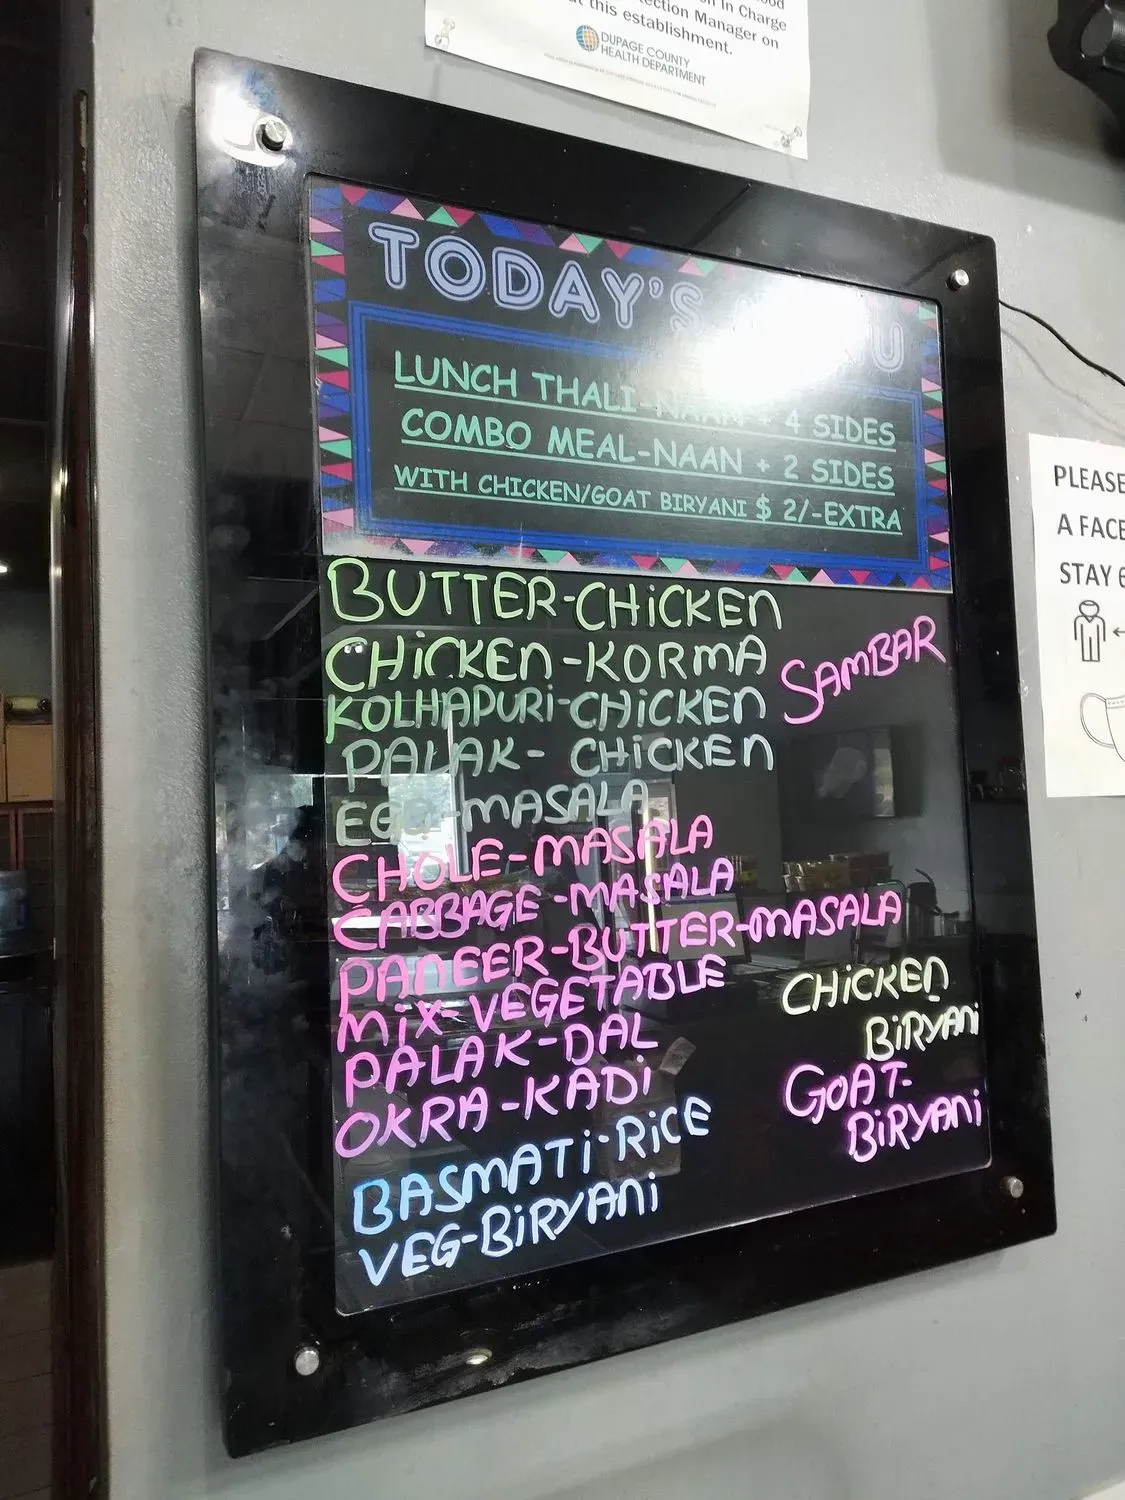 on In Charge
tection Manager on
t this establishment.
DUPAGE COUNTY
HEALTH DEPARTMENT
TODAY'S
LUNCH THALI-NAAN + 4 SIDES
COMBO MEAL-NAAN + 2 SIDES
WITH CHICKEN/GOAT BIRYANI $ 2/-EXTRA
BUTTER-CHICKEN
CHICKEN-KORMA
SAMBAR
KOLHAPURI-CHICKEN
PALAK- CHICKEN
EGG-MASALA
CHOLE-MASALA
CABBAGE-MASALA
PANEER-BUTTER-MASALA
MIX-VEGETABLE
PALAK-DAL
OKRA-KADI
BASMATI-RICE
VEG-BIRYANI
CHICKEN
BIRYANI
GOAT-
BIRYANI
PLEASE
A FACE
STAY 6